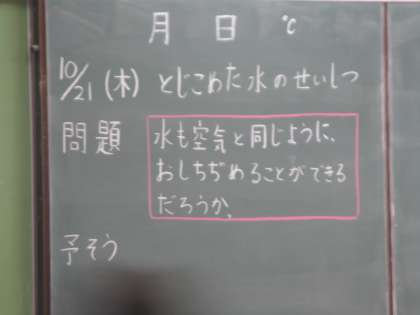 月 日 ℃
10/21 (木) とじこめた水のせいしつ
問題 水も空気と同じように、
おしちぢめることができる
だろうか。
予そう